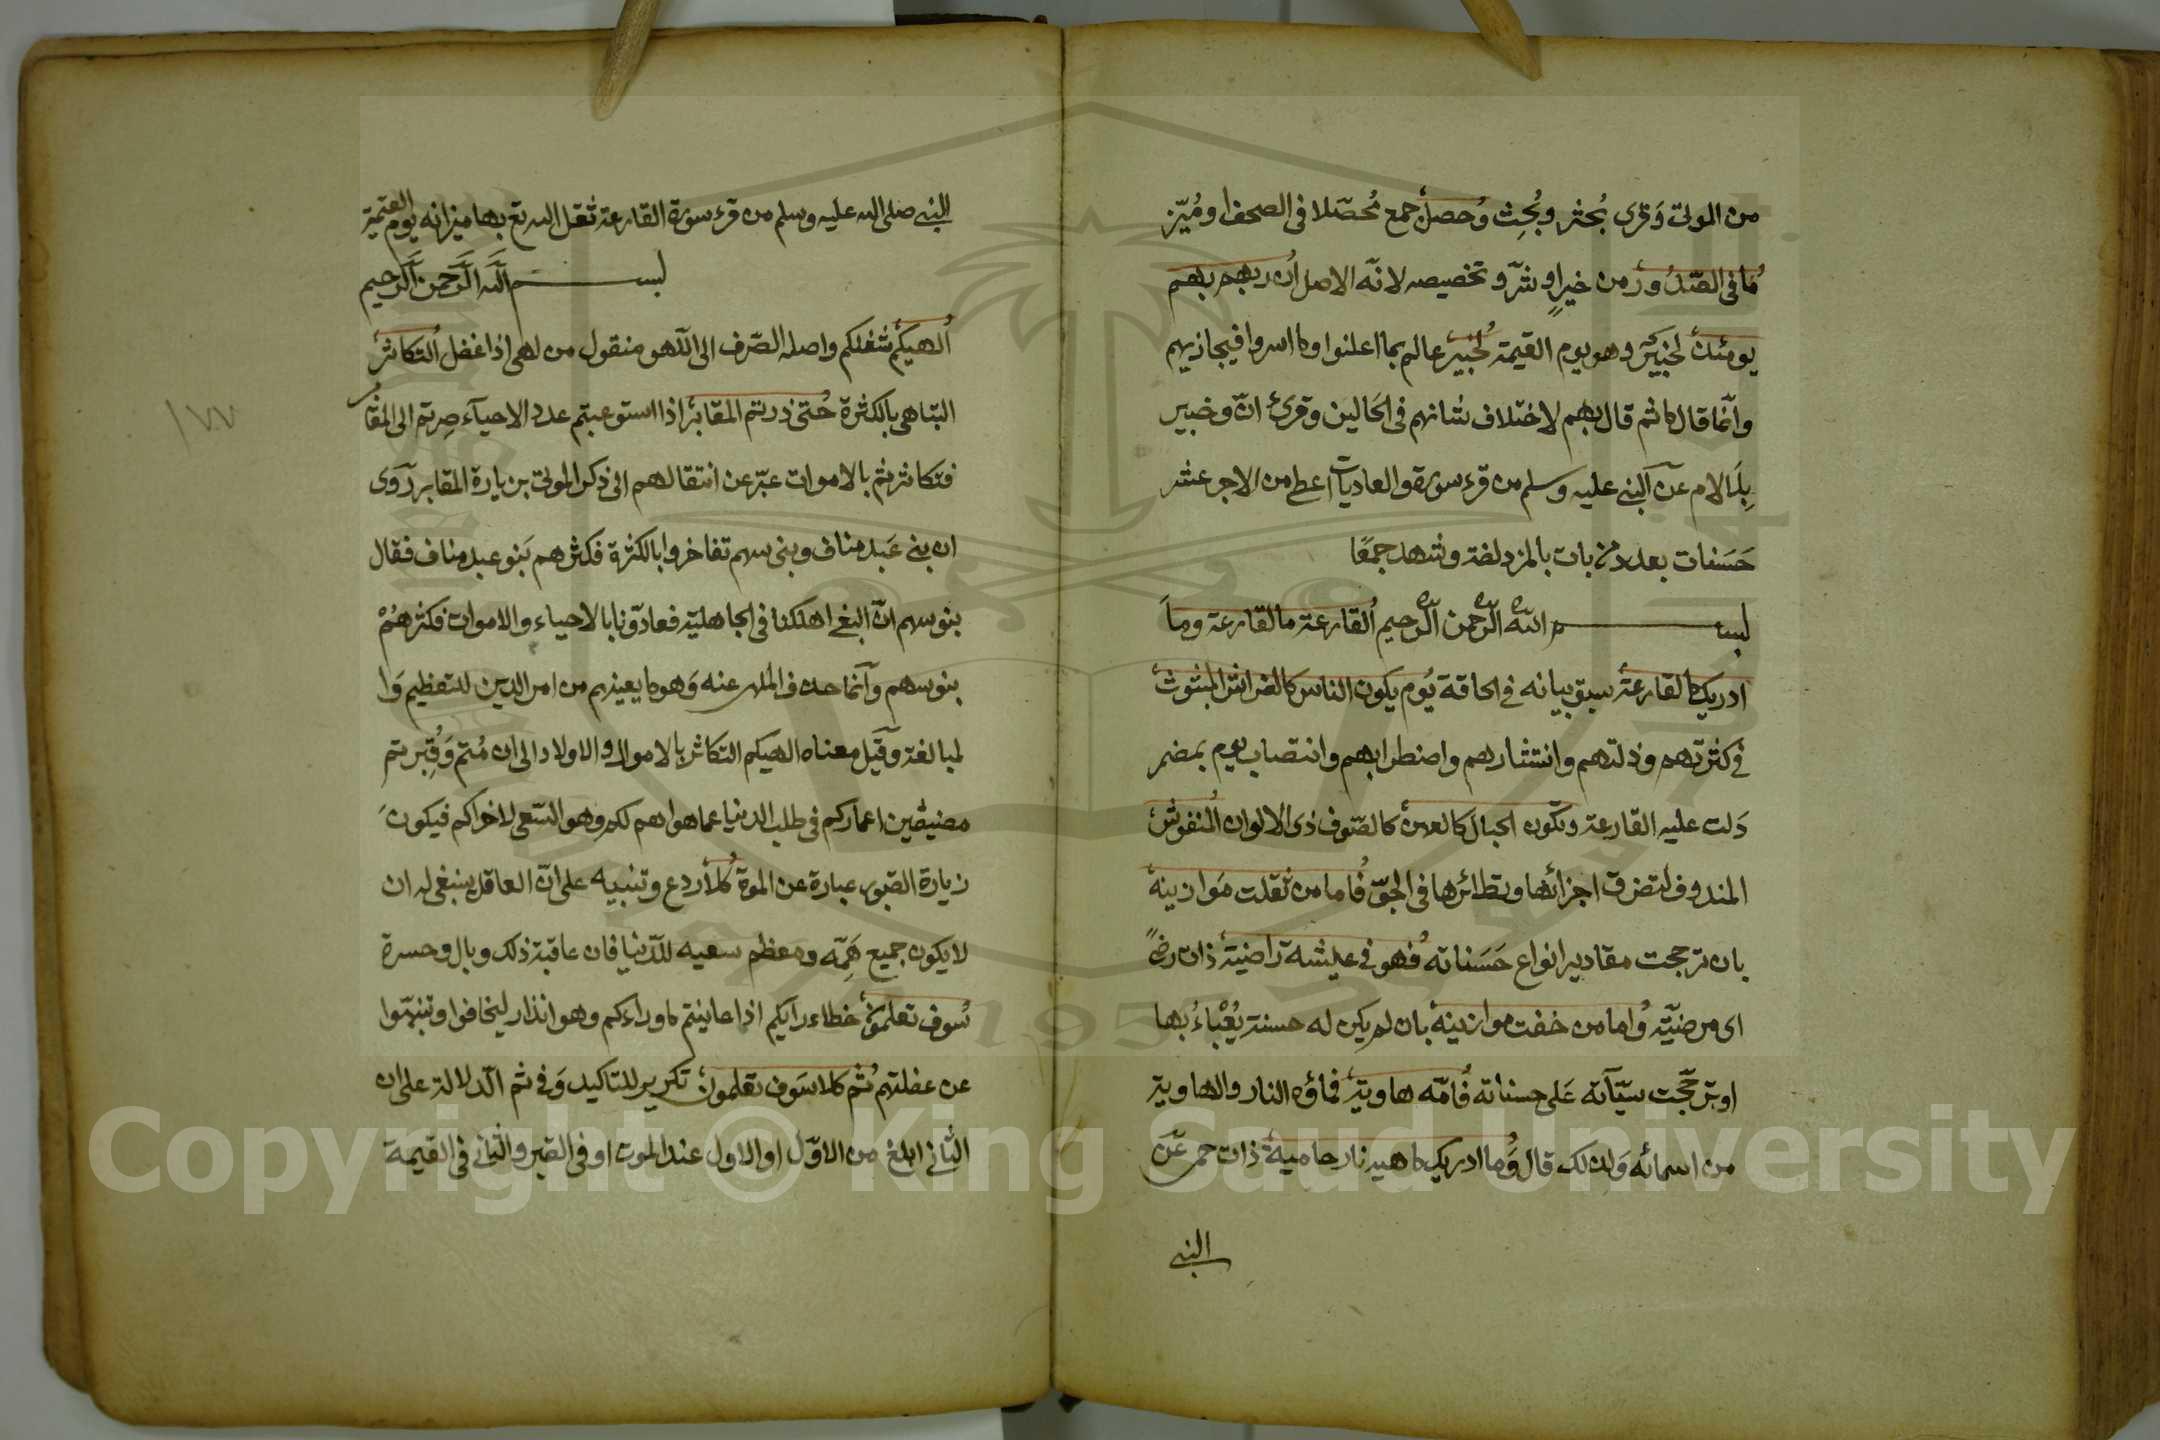 من الموتى وقرى بُحثر وبُحِث وحصل جمع مُحصّلا فى الصحف او مُيّز
ما فى الصّدور من خيرٍ او شرّ وتخصيصه لانّه الاصل ان ربهم بهم
يومئذ لخبير وهو يوم القيمة لخبير عالم بما اعلنوا وما اسروا فيجازيهم
وانّما قال ما ثم قال بهم لاختلاف شانهم فى الحالين وقرئ انّ وخبير
بلا لام عن النبي عليه وسلم من قرء سورة والعاديات اعطى من الاجر عشر
حَسَنات بعدد من بات بالمزدلفة وشهد جمعًا
بسم الله الرّحمن الرّحيم القارعة ما القارعة وما
ادريك ما القارعة سبق بيانه فى الحاقة يوم يكون الناس كالفراش المبثوث
فى كثرتهم وذلتهم وانتشارهم واضطرابهم وانتصاب يوم بمضمر
دَلت عليه القارعة وتكون الجبال كالعهن كالصّوف ذى الالوان المنفوش
المندوف لتفرق اجزائها وتطائرها فى الجوّ فاما من ثقلت موازينه
بان ترجحت مقادير انواع حَسَناته فهو فى عيشة راضية ذات رضًى
اى مرضيّة واما من خفت موازينه بان لم يكن له حسنة يُعْباءُ بها
او ترجّحت سيّآته عَلى حسناته فامّه هاوية فماؤه النار والهاوية
من اسمائه وَلذلك قال وما ادريك ما هيه نار حامية ذات حمى عن
النبي
النبي صلى الله عليه وسلم من قرء سورة القارعة ثقل الله تع بها ميزانه يوم القيمة
بسم الله الرَّحمن الرَّحيم
الهيكم شغلكم واصله الصّرف الى اللّهو منقول من لهى اذا غفل التكاثر
التباهى بالكثرة حتى زرتم المقابر اذا استوعبتم عدد الاحياء صِرتم الى المقابر
فتكاثرتم بالاموات عبّر عن انتقالهم الى ذكر الموتى بزيارة المقابر رَوى
ان بنى عَبد مناف وبنى سهم تفاخروا بالكثرة فكثرهم بَنو عبد مناف فقال
بنو سهم انّ البغى اهلكنا فى الجاهلية فعادّونا بالاحياء والاموات فكثرهُمْ
بنو سهم وانّما حذف الملهى عنه وَهو ما يعينهم من امر الدين للتعظيم وَا
لمبالغة وقيل معناه الهيكم التكاثر بالاموال والاولاد الى ان مُتم وَقُبِرتم
مضيقين اعماركم فى طلب الدنيا عما هو اهم لكم وهو السّعى لاخراكم فيكونَ
زيارة القبور عبارة عن الموت كلا ردع وتنبيه على انّ العاقل ينبغى له ان
لا يكون جميع هَمّه ومعظم سعيه للدّنيا فان عاقبة ذلك وبال وحسرة
سوف تعلمون خطاء رايكم اذا عاينتم ما وراءكم وهو انذار ليخافوا وتنبهّوا
عن غفلتهم ثم كلا سَوف تعلمون تكرير للتاكيد وَفى ثم الدّلالة على ان
الثّانى ابلغ من الاوّل او الاول عند الموت او فى القبر والثّانى فى القيمة
١٧٧
Copyright © King Saud University
1957